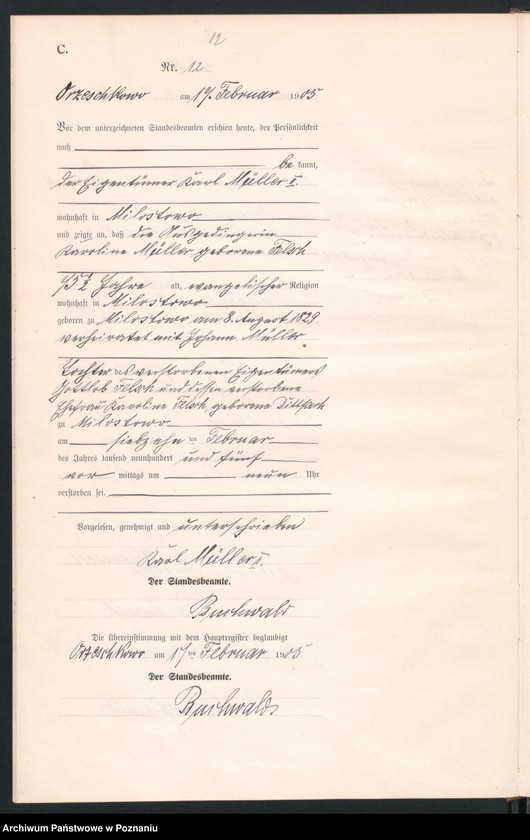 12
C.
Nr. 12
Orzeschkowo am 17. Februar 1905
Vor dem unterzeichneten Standesbeamten erschien heute, der Persönlichkeit
nach
be kannt,
der Eigentümer Karl Müller II.
wohnhaft in Milostowo
und zeigte an, daß die Ausgedingerin
Karoline Müller geborene Felsch
75 1/2 Jahre alt, evangelischer Religion
wohnhaft in Milostowo
geboren zu Milostowo am 8. August 1829
verheiratet mit Johann Müller
Tochter des verstorbenen Eigentümers
Gottlob Felsch und dessen verstorbene
Ehefrau Karoline Felsch, geborene
zu Milostowo
am siebzehn ten Februar
des Jahres tausend neunhundert und fünf
vor mittags um neun Uhr
verstorben sei.
Vorgelesen, genehmigt und unterschrieben
Karl Müller II.
Der Standesbeamte.
Buchwald
Die Übereinstimmung mit dem Hauptregister beglaubigt
Orzeschkowo am 17 ten Februar 1905
Der Standesbeamte.
Buchwald
Archiwum Państwowe w Poznaniu